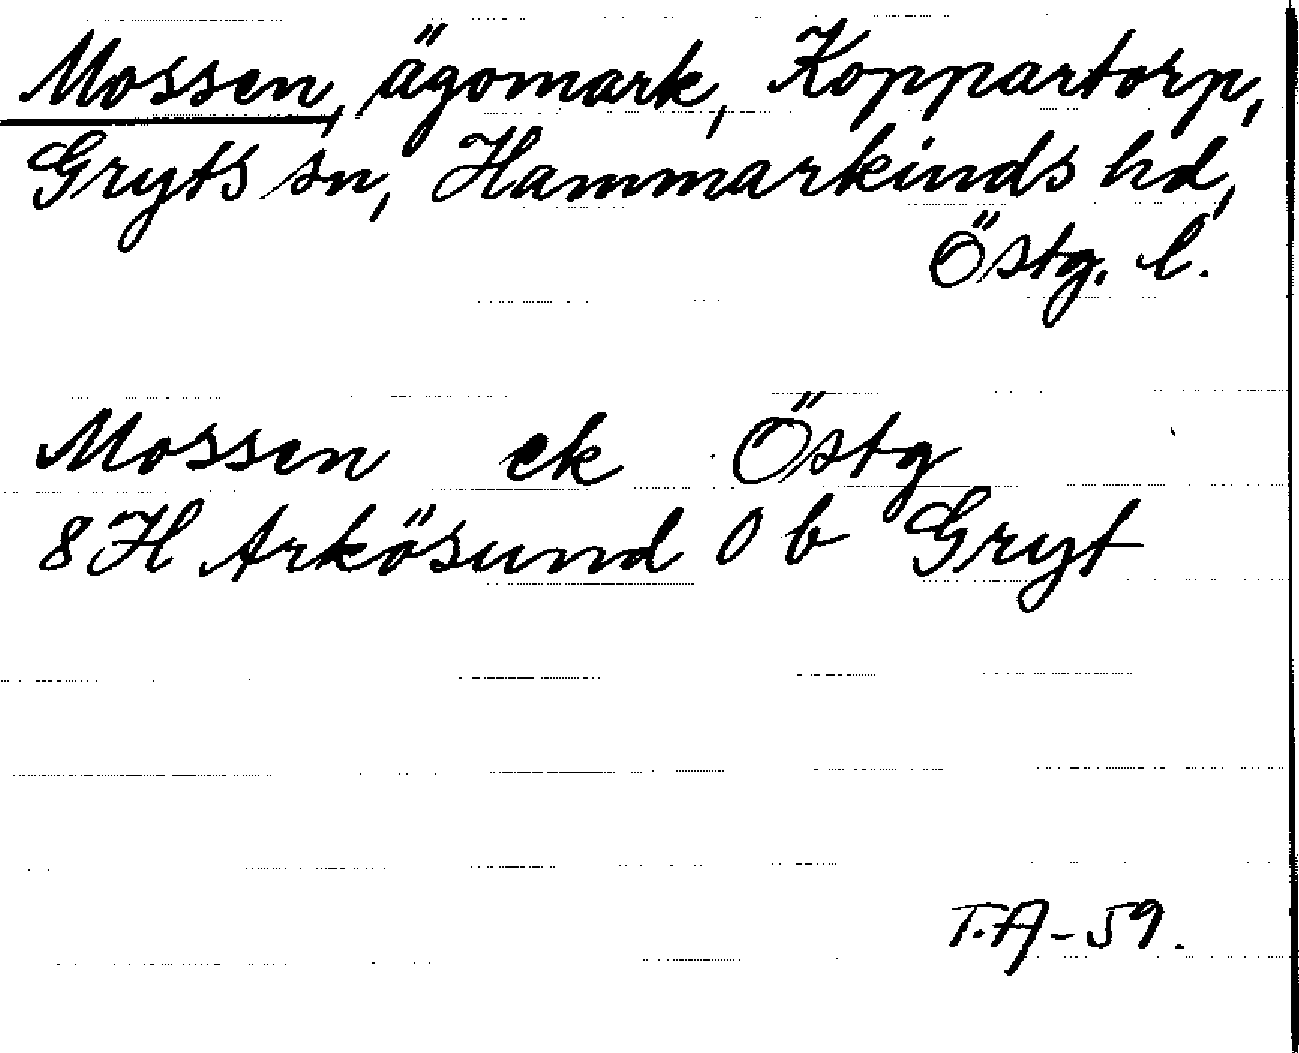 Mossen, ägomark, Koppartorp,
Gryts sn, Hammarkinds hd,
Östg. l.
Mossen ek Östg
8H Arkösund 0 b Gryt
T.A-59.